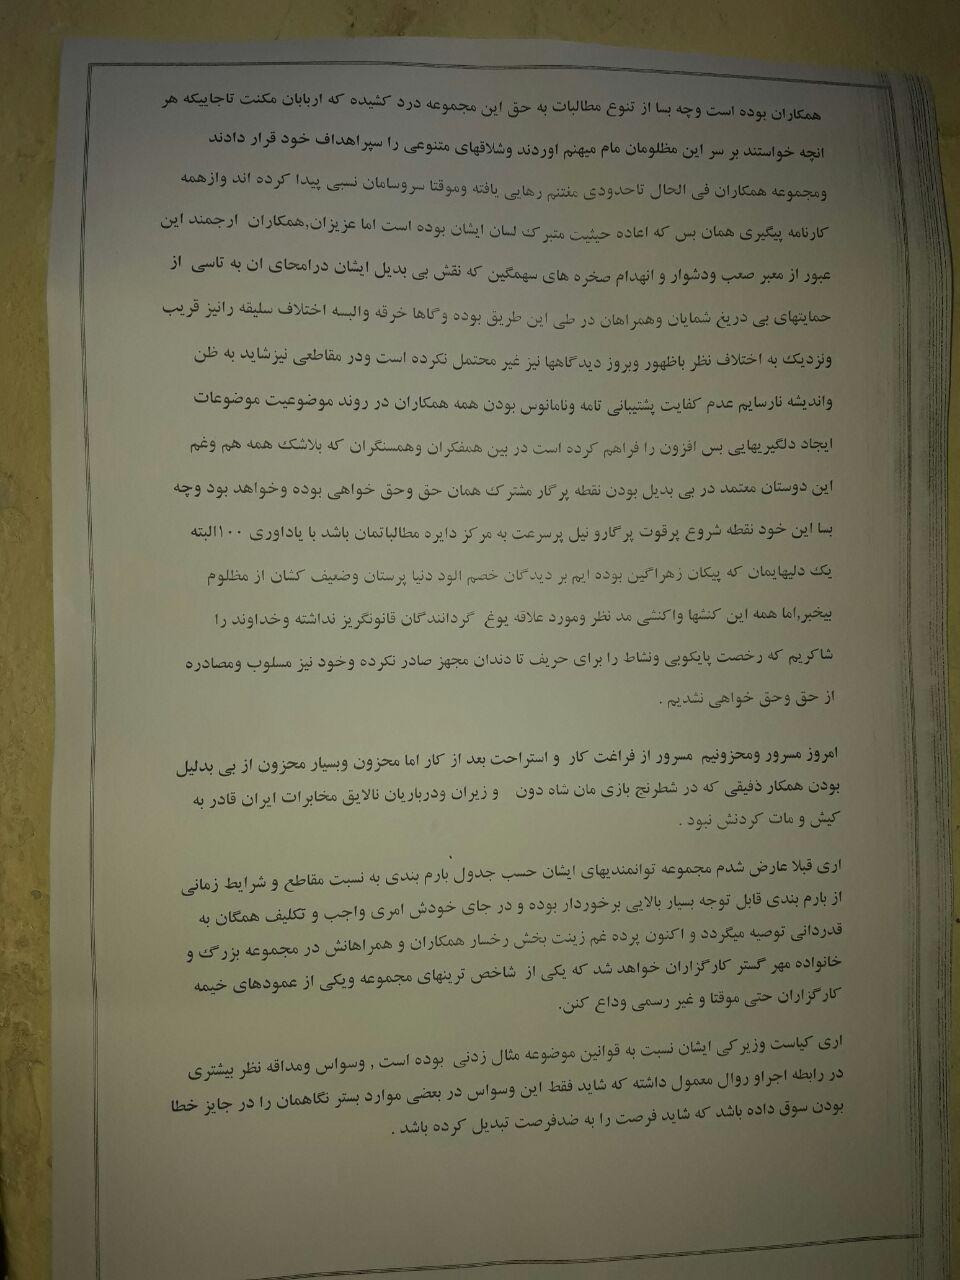 همکاران بوده است وچه بسا از تنوع مطالبات به حق این مجموعه درد کشیده که اربابان مکنت تاجاییکه هر
انچه خواستند بر سر این مظلومان مام میهنم اوردند وشلاقهای متنوعی را سپراهداف خود قرار دادند
ومجموعه همکاران فی الحال تاحدودی منتنم رهایی یافته وموقتا سروسامان نسبی پیدا کرده اند وازهمه
کارنامه پیگیری همان بس که اعاده حیثیت متبرک لسان ایشان بوده است اما عزیزان,همکاران ارجمند این
عبور از معبر صعب ودشوار و انهدام صخره های سهمگین که نقش بی بدیل ایشان درامحای ان به تاسی از
حمایتهای بی دریغ شمایان وهمراهان در طی این طریق بوده وگاها خرقه والبسه اختلاف سلیقه رانیز قریب
ونزدیک به اختلاف نظر باظهور وبروز دیدگاهها نیز غیر محتمل نکرده است ودر مقاطعی نیزشاید به ظن
واندیشه نارسایم عدم کفایت پشتیبانی تامه ونامانوس بودن همه همکاران در روند موضوعیت موضوعات
ایجاد دلگیریهایی بس افزون را فراهم کرده است در بین همفکران وهمسنگران که بلاشک همه هم وغم
این دوستان معتمد در بی بدیل بودن نقطه پرگار مشترک همان حق وحق خواهی بوده وخواهد بود وچه
بسا این خود نقطه شروع پرقوت پرگارو نیل پرسرعت به مرکز دایره مطالباتمان باشد با یاداوری ۱۰۰البته
یک دلیهایمان که پیکان زهراگین بوده ایم بر دیدگان خصم الود دنیا پرستان وضعیف کشان از مظلوم
بیخبر,اما همه این کنشها واکنشی مد نظر ومورد علاقه یوغ گردانندگان قانونگریز نداشته وخداوند را
شاکریم که رخصت پایکوبی ونشاط را برای حریف تا دندان مجهز صادر نکرده وخود نیز مسلوب ومصادره
از حق وحق خواهی نشدیم .
امروز مسرور ومحزونیم مسرور از فراغت کار و استراحت بعد از کار اما محزون وبسیار محزون از بی بدلیل
بودن همکار ذفیقی که در شطرنج بازی مان شاه دون و زیران ودرباریان نالایق مخابرات ایران قادر به
کیش و مات کردنش نبود .
اری قبلا عارض شدم مجموعه توانمندیهای ایشان حسب جدول بارم بندی به نسبت مقاطع و شرایط زمانی
از بارم بندی قابل توجه بسیار بالایی برخوردار بوده و در جای خودش امری واجب و تکلیف همگان به
قدردانی توصیه میگردد و اکنون پرده غم زینت بخش رخسار همکاران و همراهانش در مجموعه بزرگ و
خانواده مهر گستر کارگزاران خواهد شد که یکی از شاخص ترینهای مجموعه ویکی از عمودهای خیمه
کارگزاران حتی موقتا و غیر رسمی وداع کنن.
اری کیاست وزیرکی ایشان نسبت به قوانین موضوعه مثال زدنی بوده است , وسواس ومداقه نظر بیشتری
در رابطه اجراو روال معمول داشته که شاید فقط این وسواس در بعضی موارد بستر نگاهمان را در جایز خطا
بودن سوق داده باشد که شاید فرصت را به ضدفرصت تبدیل کرده باشد .